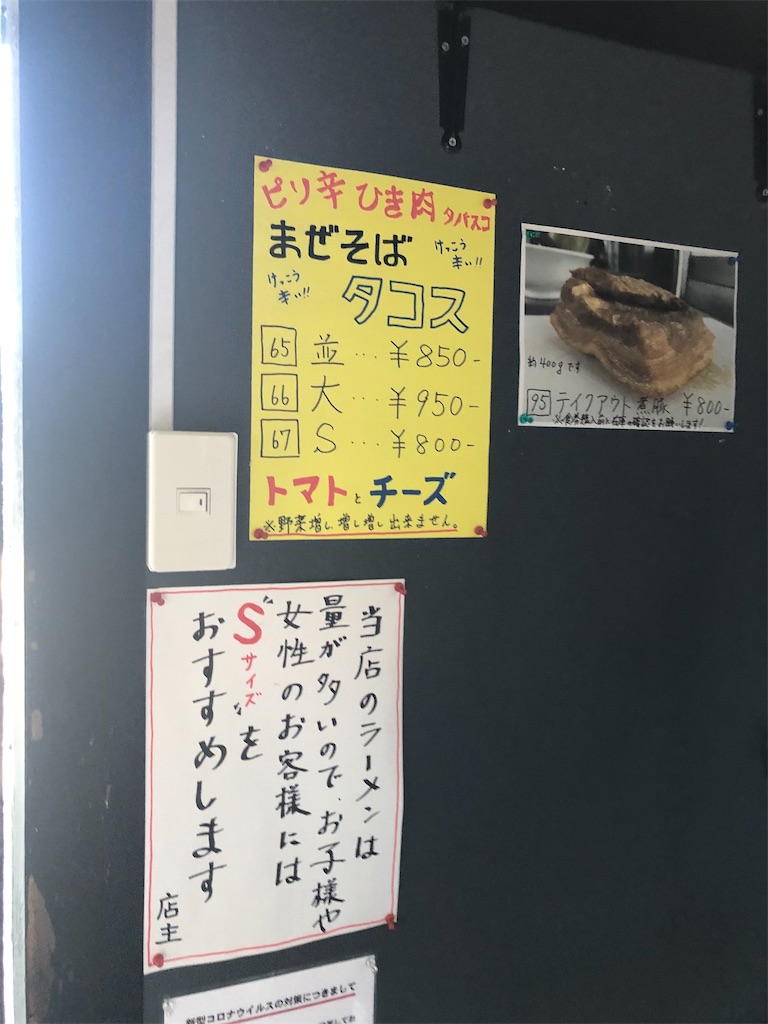 ピリ辛ひき肉タバスコ
まぜそば
けっこう
辛い!!
けっこう
辛い!!
タコス
65 並…¥850-
66 大…¥950-
67 S…¥800-
トマトとチーズ
※野菜増し、増し増し出来ません。
約400gです
95 テイクアウト煮豚 ¥800-
※食券購入前に在庫の確認をお願いします!
当店のラーメンは
量が多いので、お子様や
女性のお客様には
"Sサイズ"を
おすすめします
店主
新型コロナウイルスの対策につきまして